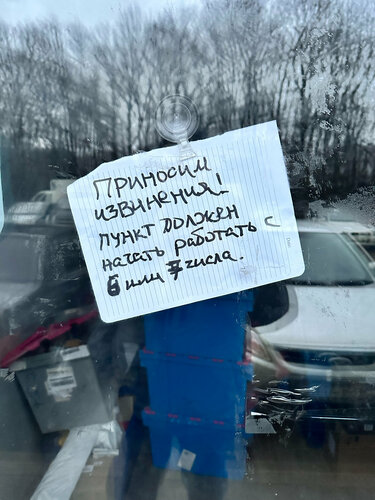 Приносим
извинения!
пункт должен
начать работать с
6 или 7 числа.